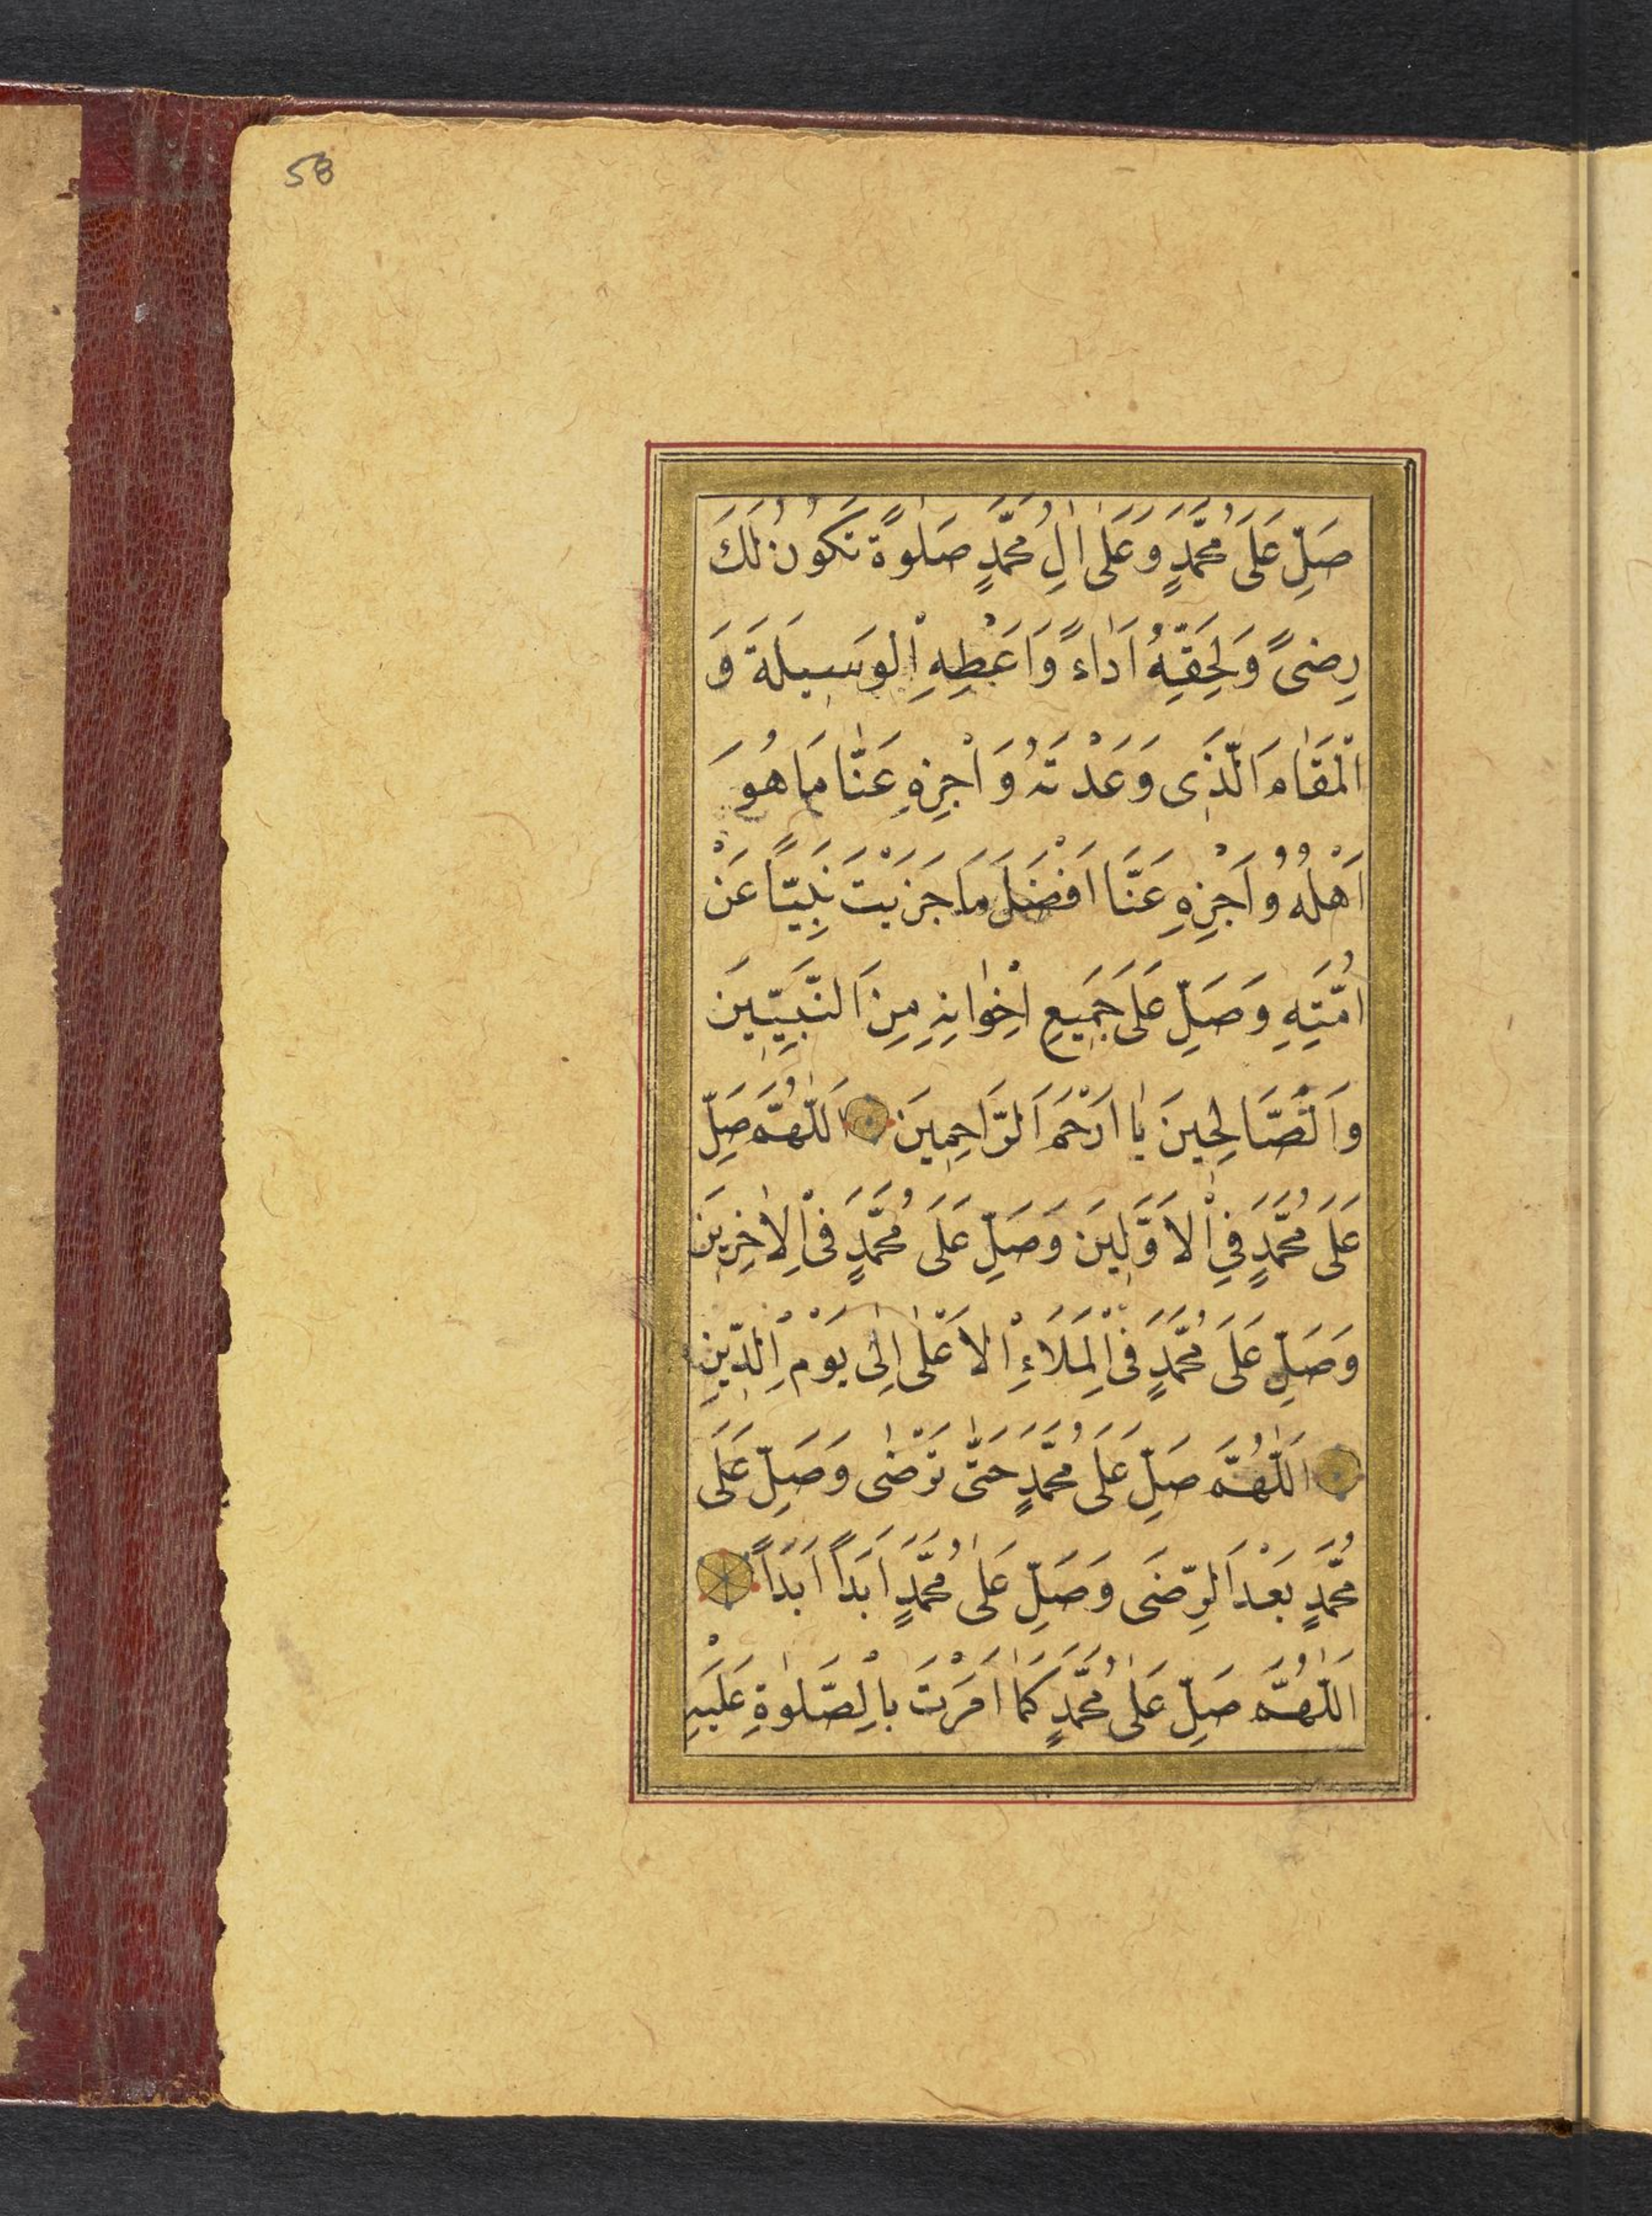 58
صَلِّ عَلَى مُحَمَّدٍ وَعَلٰى اٰلِ مُحَمَّدٍ صَلٰوةً تَكُونُ لَكَ
رِضىً وَلِحَقِّهِ اَدَاءً وَاَعْطِهِ الْوَسِيلَةَ وَ
الْمَقَامَ الَّذِى وَعَدْتَهُ وَاجْزِهِ عَنَّا مَا هُوَ
اَهْلُهُ وُ اَجْزِهِ عَنَّا اَفْضَلَ مَا جَزَيْتَ نَبِيّاً عَنْ
اُمَّتِهِ وَصَلِّ عَلَى جَمِيعِ اِخْوَانِهِ مِنَ النَّبِيِّينَ
وَالصَّالِحِينَ يٰا اَرْحَمَ الرَّاحِمِينَ اَللّٰهُمَّ صَلِّ
عَلَى مُحَمَّدٍ فِي الْاَوَّلِينَ وَصَلِّ عَلَى مُحَمَّدٍ فِى الْاٰخِرِينَ
وَصَلِّ عَلَى مُحَمَّدٍ فِى الْمَلَاءِ الْاَعْلٰى اِلٰى يَوْمِ الدِّينِ
اَللّٰهُمَّ صَلِّ عَلَى مُحَمَّدٍ حَتّٰى تَرْضٰى وَصَلِّ عَلَى
مُحَمَّدٍ بَعْدَ الرِّضَى وَصَلِّ عَلٰى مُحَمَّدٍ اَبَداً اَبَدَاً
اَللّٰهُمَّ صَلِّ عَلٰى مُحَمَّدٍ كَمٰا اَمَرْتَ بِالصَّلٰوةِ عَلَيْهِ